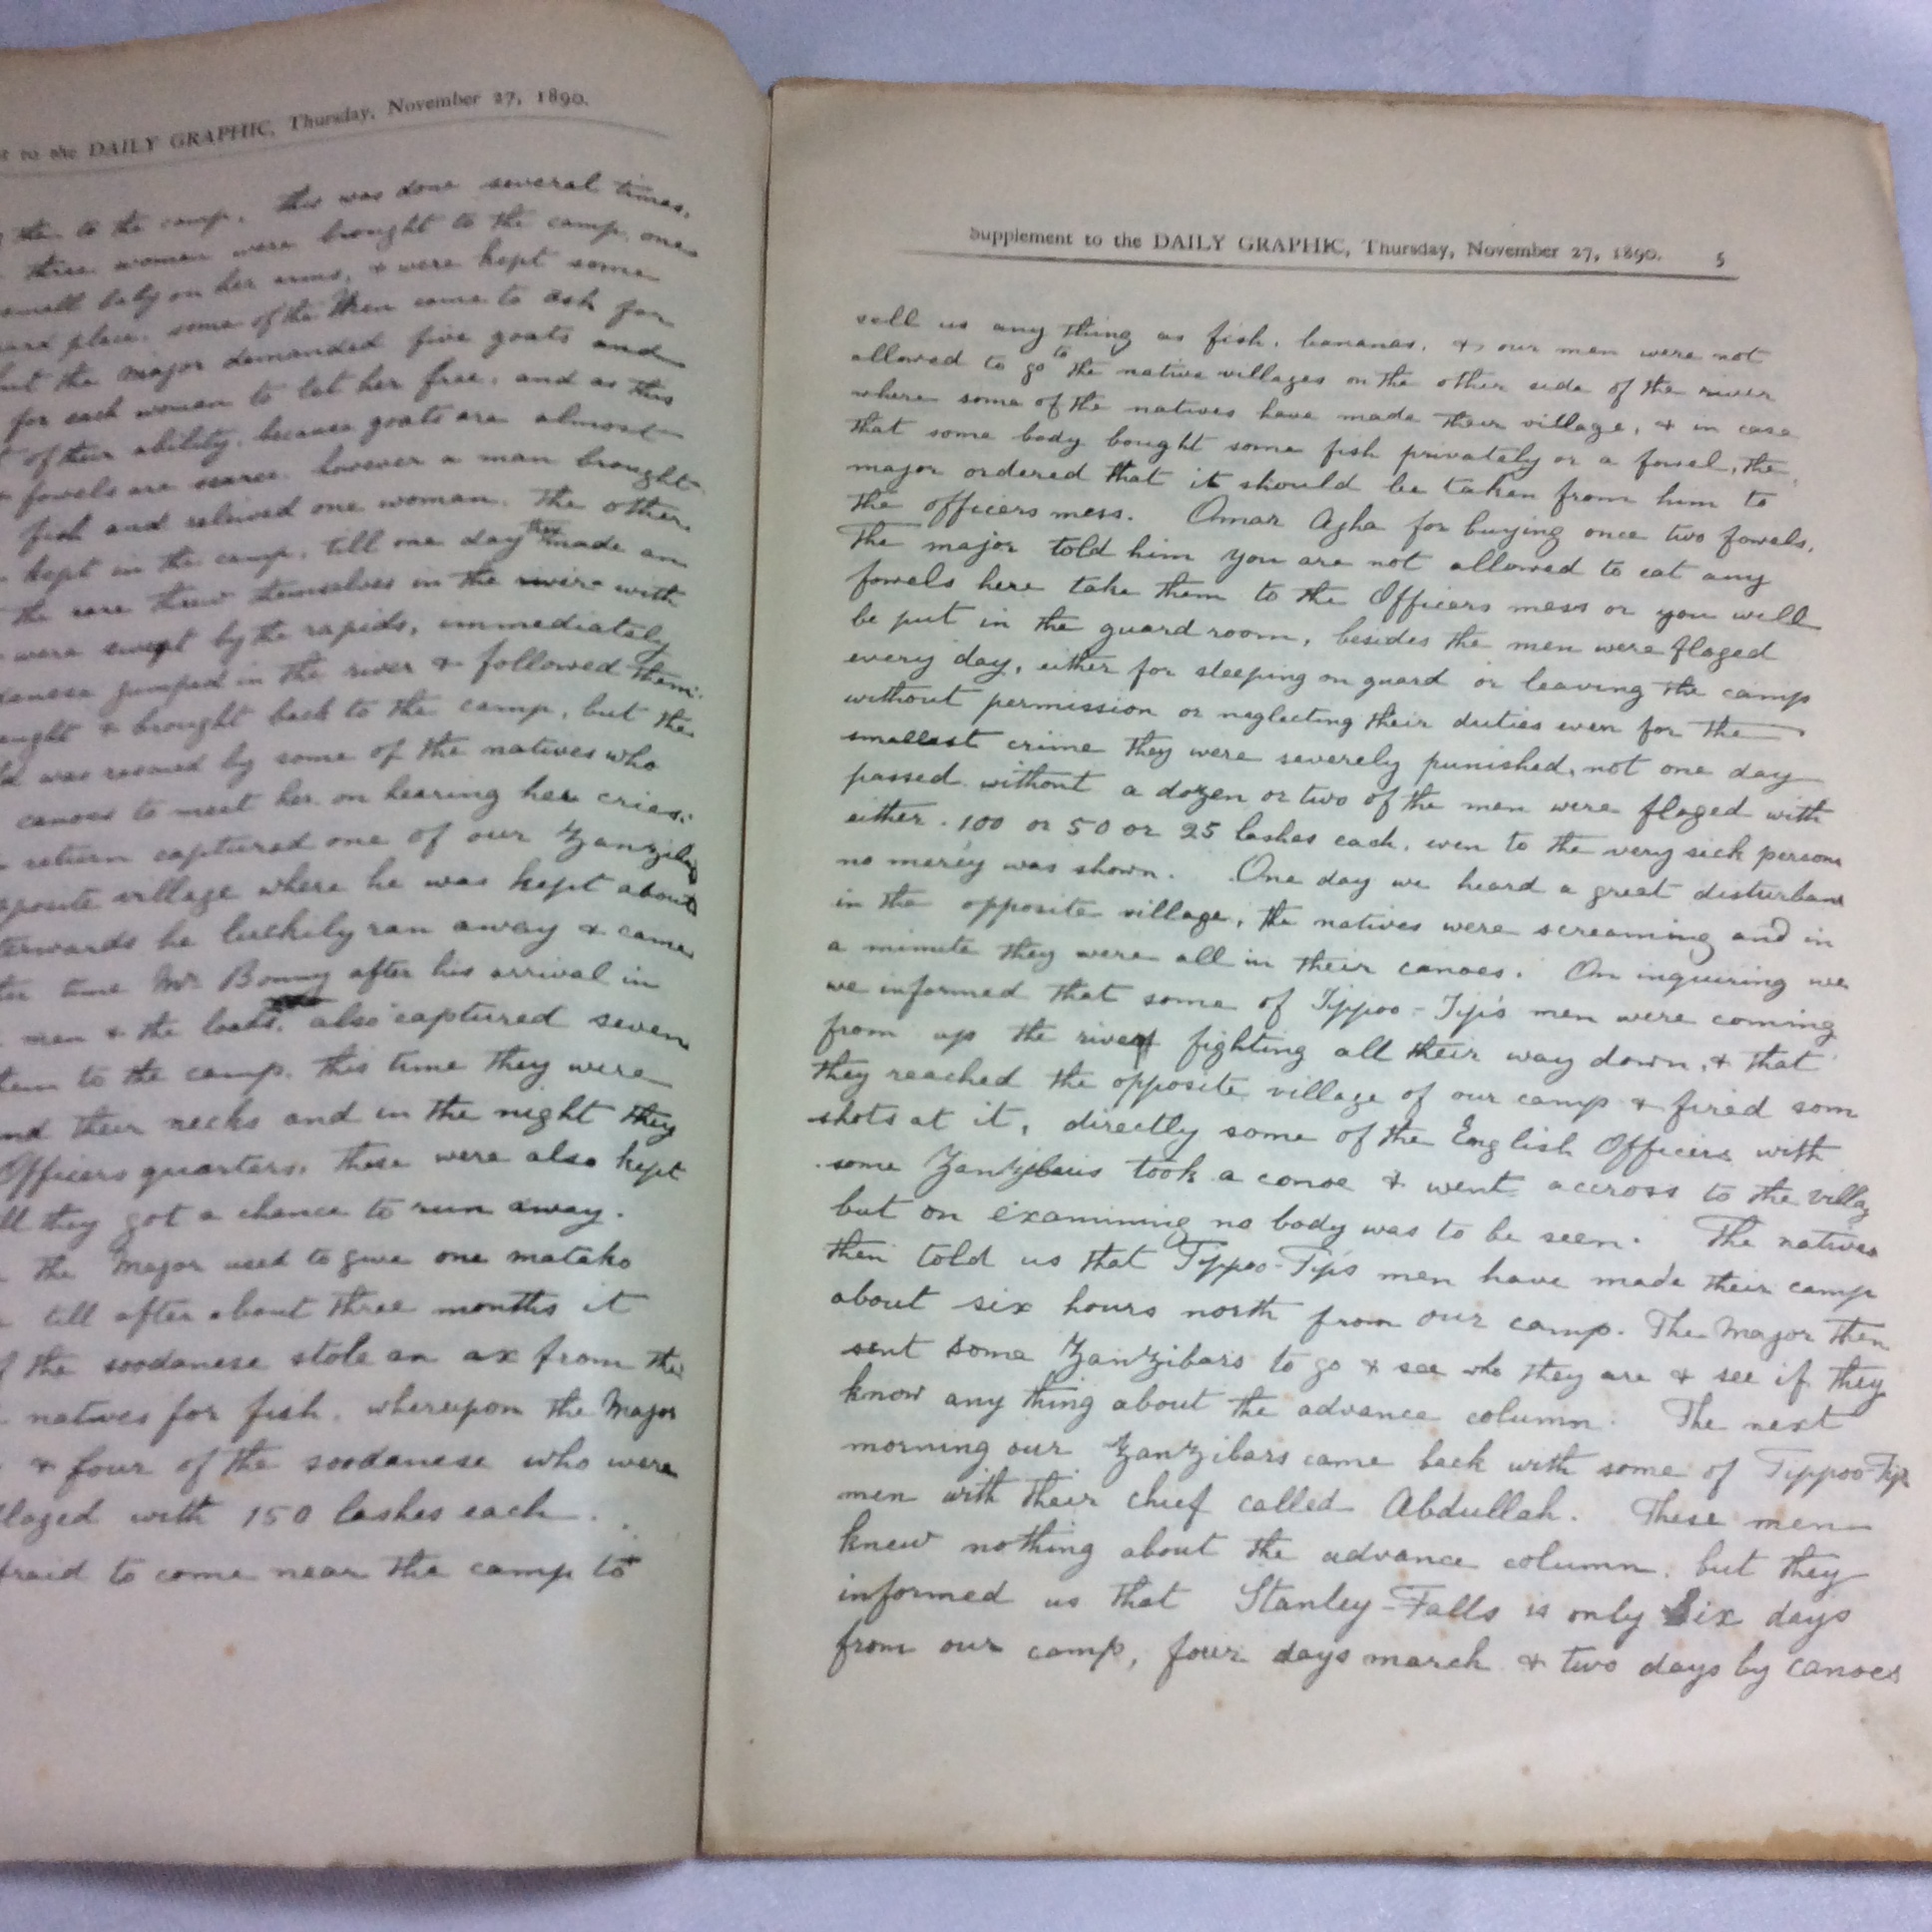 to the DAILY GRAPHIC, Thursday, November 27, 1890.
the to the camp. this was done several times.
three women were brought to the camp, one
small baby on her arms, & were kept some
place. some of the Men came to ask for
but the Major demanded five goats and
for each woman to let her free, and as this
of their ability, because goats are almost
fowels are scarce. however a man brought
fish and relived one woman. The other
kept in the camp, till one day they made an
the threw themselves in the river with
were swept by the rapids, immediately
jumped in the river & followed them.
& brought back to the camp, but the
was by some of the natives who
canoes to meet her on hearing her cries.
return captured one of our Zanzibars
village where he was kept about
he luckily ran away & came
time Mr. Bonny after his arrival in
men & the loads, also captured seven
to the camp. this time they were
their necks and in the night they
Officers quarters. These were also kept
they got a chance to run away.
the Major used to give one matako
till after about three months it
the soodanese stole an ax from the
natives for fish, whereupon the Major
& four of the soodanese who were
with 150 lashes each.
to come near the camp to
Supplement to the DAILY GRAPHIC, Thursday, November 27, 1890. 5
sell us any thing as fish, bananas, & our men were not
allowed to go to the native villages on the other side of the river
where some of the natives have made their village, & in case
that some body bought some fish privately or a fowel, the
major ordered that it should be taken from him to
the officers mess. Omar Agha for buying once two fowels,
The major told him you are not allowed to eat any
fowels here take them to the Officers mess or you will
be put in the guard room, besides the men were flaged
every day, either for sleeping on guard or leaving the camp
without permission or neglecting their duties even for the
smallest crime they were severely punished, not one day
passed without a dozen or two of the men were flaged with
either. 100 or 50 or 25 lashes each, even to the very sick persons
no mercy was shown. One day we heard a great
in the opposite village, the natives were screaming and in
a minute they were all in their canoes. On inquiring we
we informed that some of Tippoo-Tip's men were coming
from up the river fighting all their way down, & that
they reached the opposite village of our camp & fired som
shots at it, directly some of the English Officers with
some Zanzibaris took a canoe & went accross to the
but on examining no body was to be seen. The natives
then told us that Tippoo-Tip's men have made their camp
about six hours north from our camp. The Major then
sent some Zanzibars to go & see who they are & see if they
know any thing about the advance column. The next
morning our Zanzibars came back with some of Tippoo-Tip's
men with their chief called Abdullah. These men
knew nothing about the advance column, but they
informed us that Stanley-Falls is only Six days
from our camp, four days march & two days by canoes